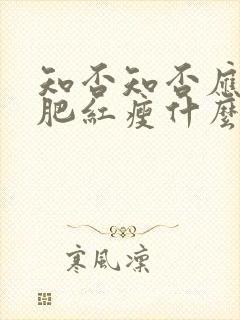 知否知否應
肥紅瘦什麼
寒風凜